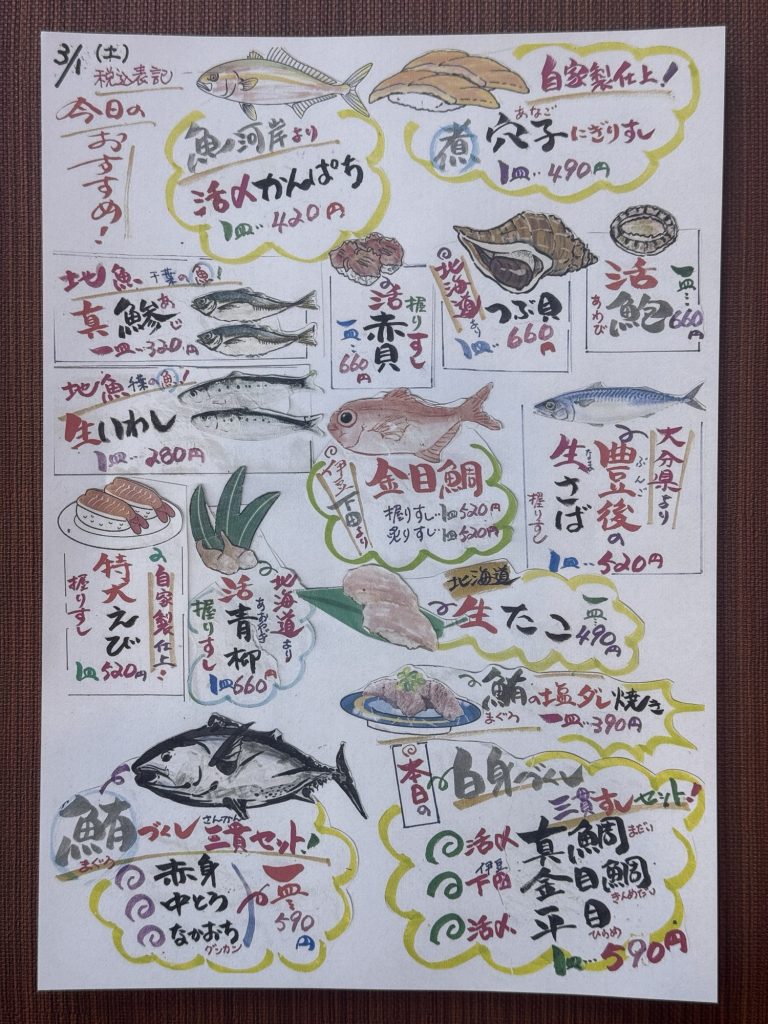 3/1 (土)
税込表記
今日の
おすすめ!
魚河岸より
活〆かんぱち
1皿…420円
自家製仕上!
あなご
煮穴子にぎりすし
1皿…490円
地魚 千葉の魚!
真鯵
あじ
一皿…320円
地魚 千葉の魚!
生いわし
1皿…280円
活赤貝
握りすし
一皿…660円
北海道より
つぶ貝
1皿…660円
活鮑
あわび
一皿…660円
伊豆下田より
金目鯛
握りすし…1皿520円
炙りすし…1皿520円
大分県より
豊後の
ぶんご
生さば
なま
握りすし
1皿…520円
自家製仕上!
特大えび
握りすし
1皿520円
北海道より
活青柳
あおやぎ
握りすし
1皿660円
北海道
生たこ
一皿…490円
鮪の塩ダレ焼き
まぐろ
一皿…390円
鮪づくし三貫セット!
まぐろ
さんかん
赤身
中とろ
なかおち
グンカン
一皿…590円
本日の
白身づくし
三貫すしセット!
活〆 真鯛 まだい
伊豆下田 金目鯛 きんめだい
活〆 平目 ひらめ
1皿…590円